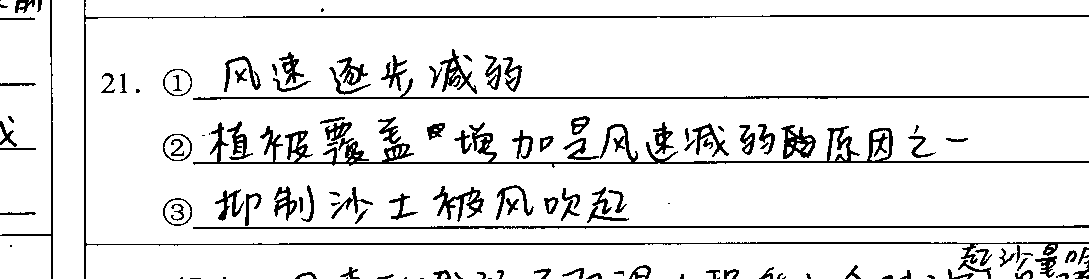 21. ① 风速逐步减弱
② 植被覆盖增加是风速减弱的原因之一
③ 抑制沙土被风吹起
起沙量明